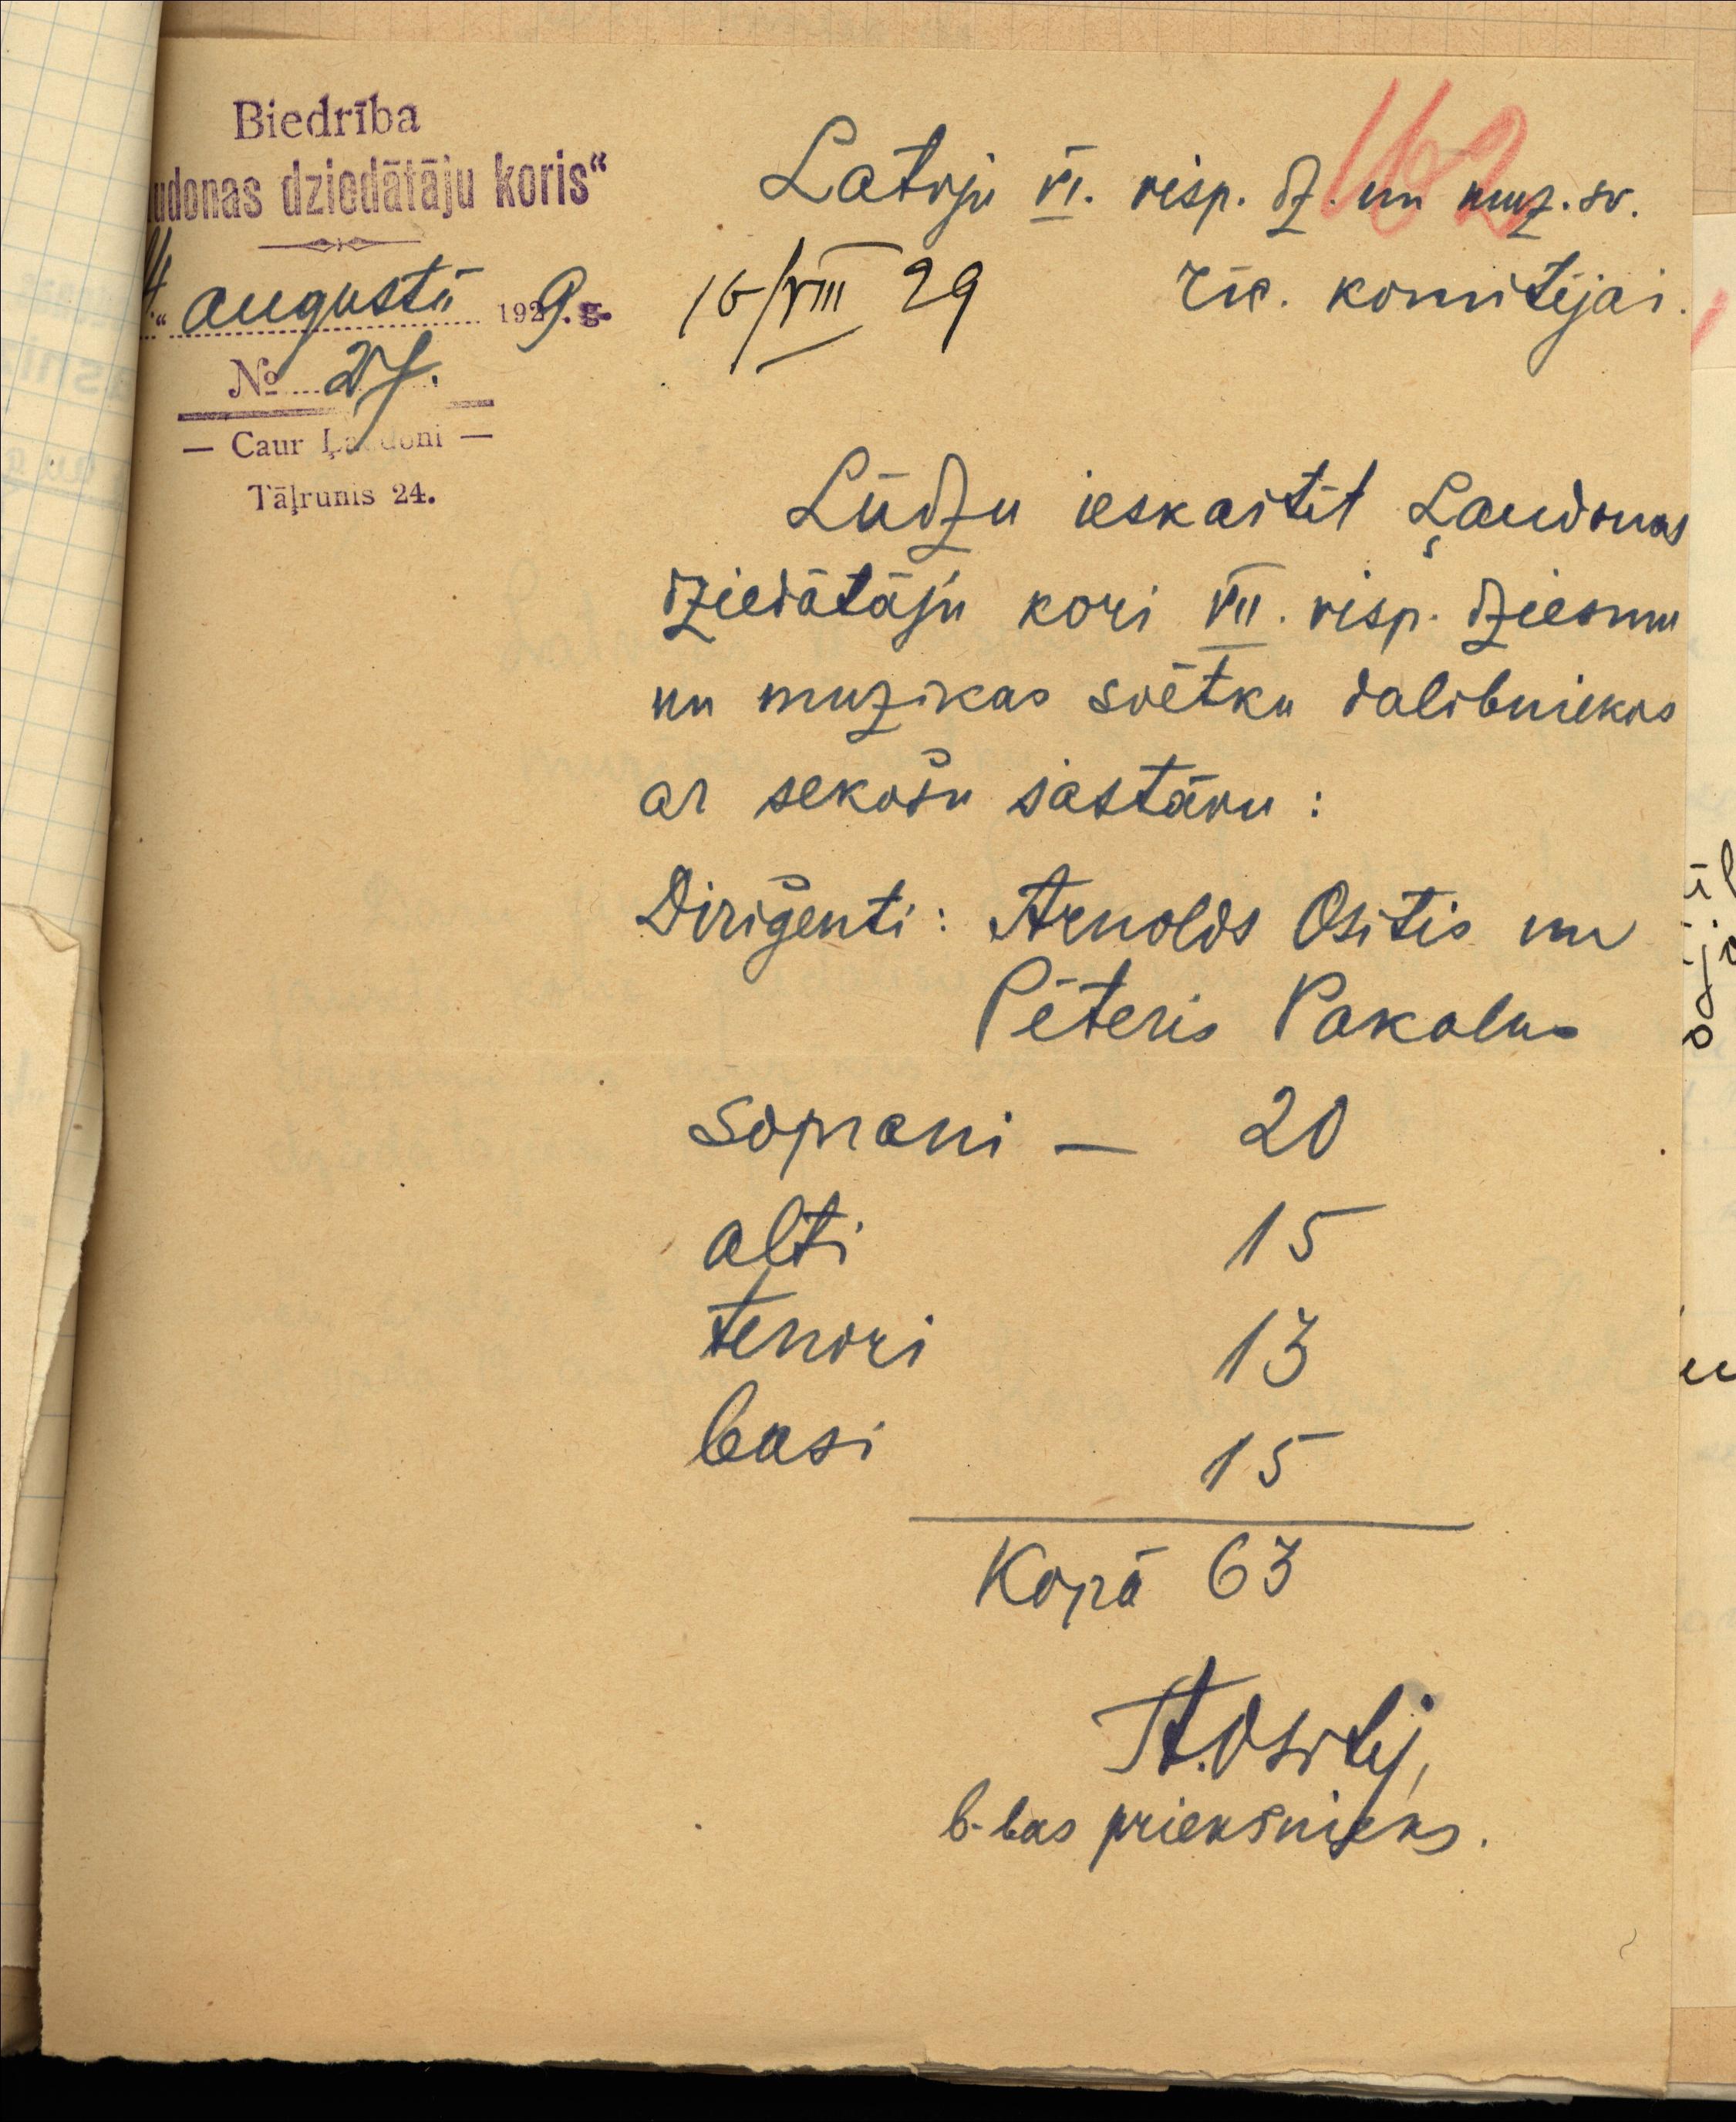 Biedrība
udonas dziedātāju koris“
4. augustā 1929. g.
№ 27.
— Caur Ļaudoni —
Tāļrunis 24.
162
Latvju VI. visp. dz. un muz. sv.
16/VIII 29 rīc. komitējai.
Lūdzu ieskaitīt Ļaudonas
dziedātāju kori VII. visp. dziesmu
un muzikas svētku dalibniekos
ar sekošu sastāvu :
Diriģenti: Arnolds Ositis un
Pēteris Pakalns
Soprani — 20
alti 15
tenori 13
basi 15
Kopā 63
A. Osītis,
b-bas priekšnieks.